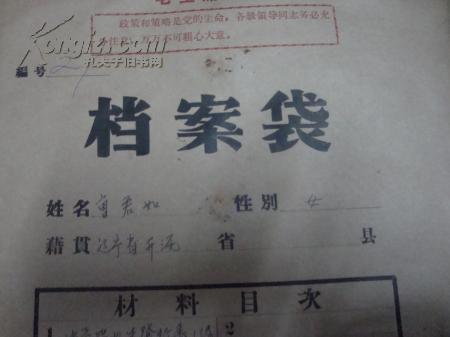 政策和策略是党的生命，各级领导同志务必充
注意，万万不可粗心大意。
kongfz.com
孔夫子旧书网
編号
档案袋
姓名 君如 性别 女
藉貫 辽宁省开 省 县
材料目次
1 2